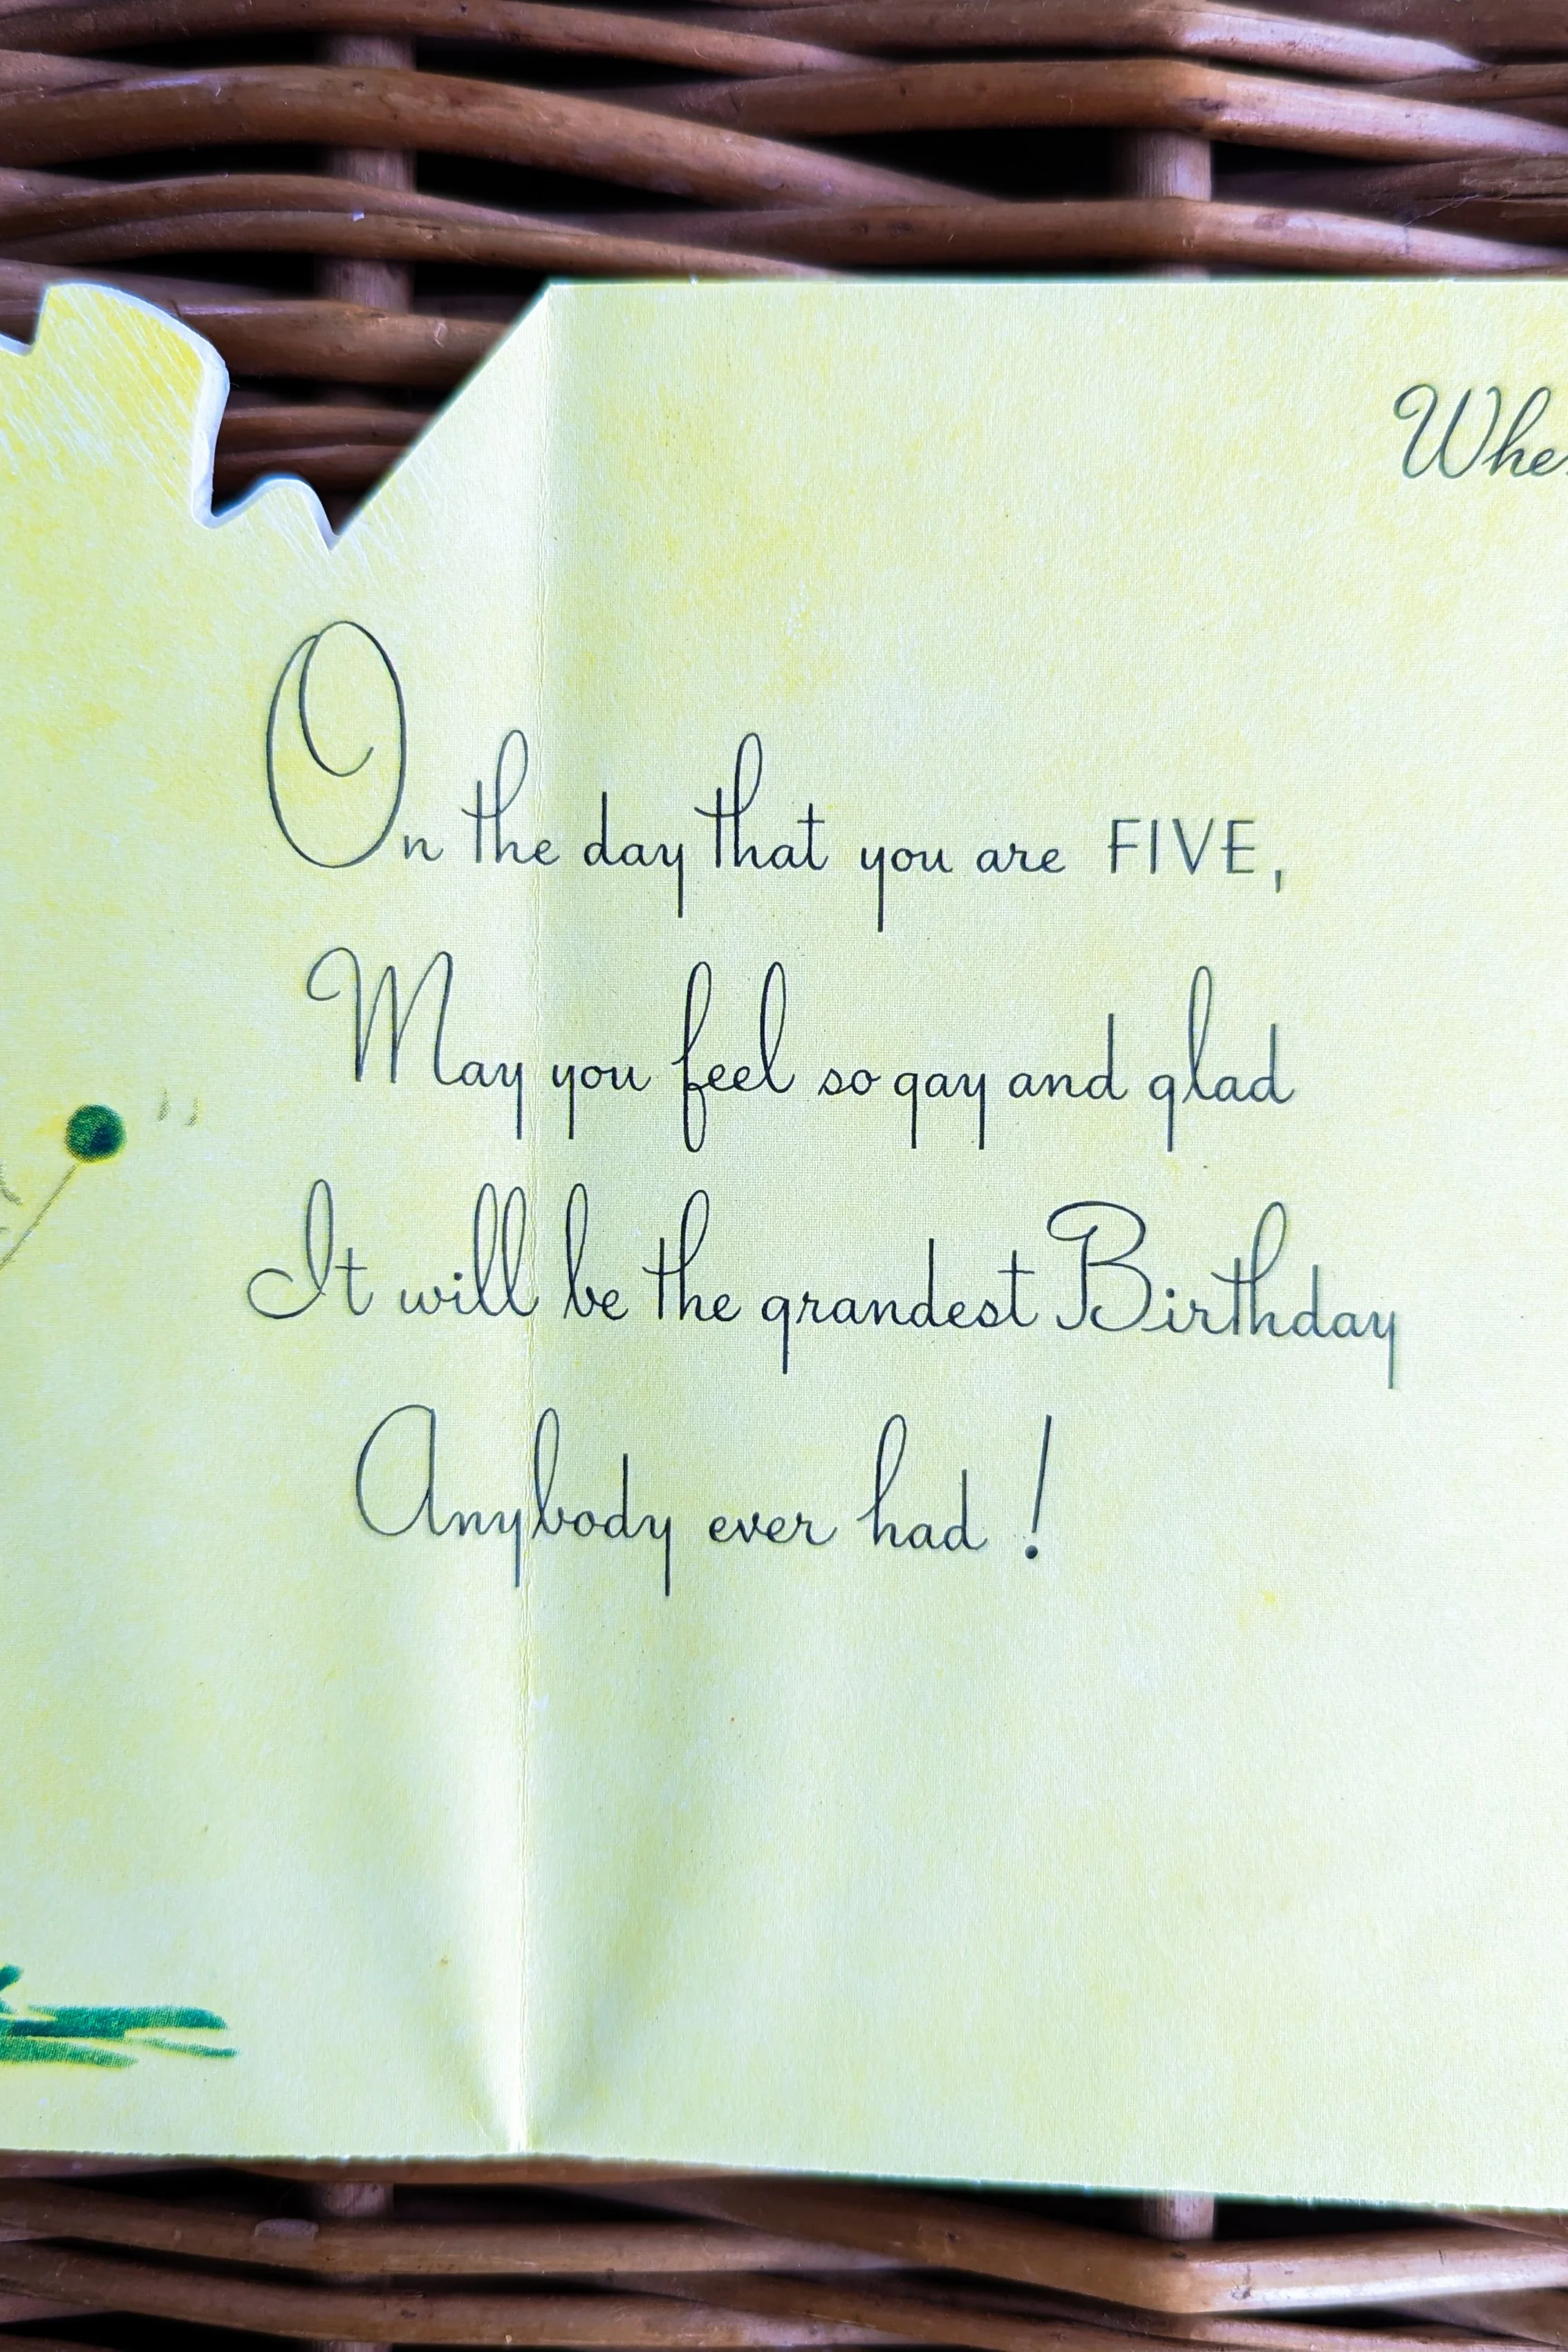 On the day that you are FIVE,
May you feel so gay and glad
It will be the grandest Birthday
Anybody ever had!